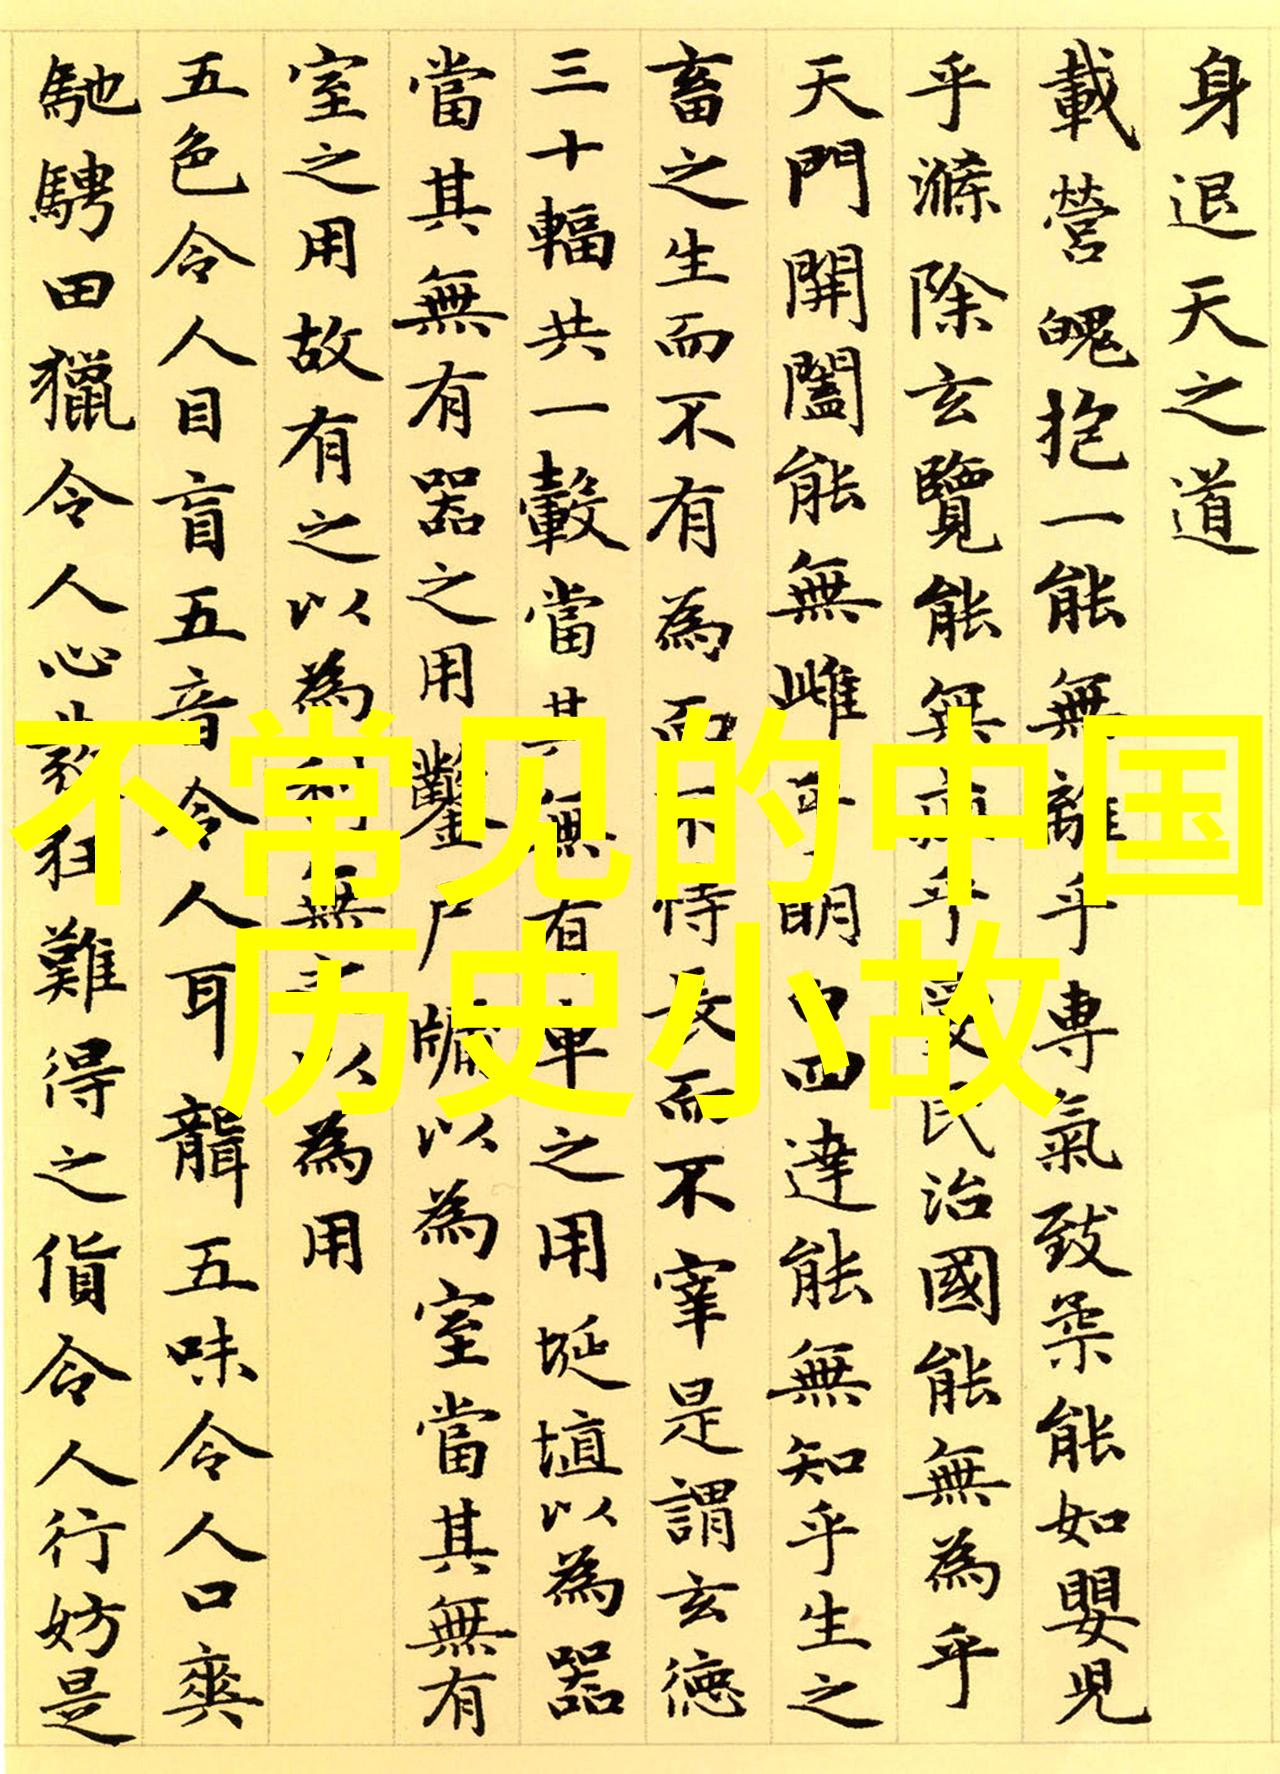 身退天之道
載營魄抱一能無離乎專氣致柔能如嬰兒
乎滌除玄覽能無疵乎愛民治國能無為乎
天門開闔能無雌乎明白四達能無知乎生之
畜之生而不有為而不恃長而不宰是謂玄德
三十輻共一轂當其無有車之用埏埴以為器
當其無有器之用鑿戶牖以為室當其無有
室之用故有之以為利無之以為用
五色令人目盲五音令人耳聾五味令人口爽
馳騁田獵令人心發狂難得之貨令人行妨是
不常见的中国
历史小故